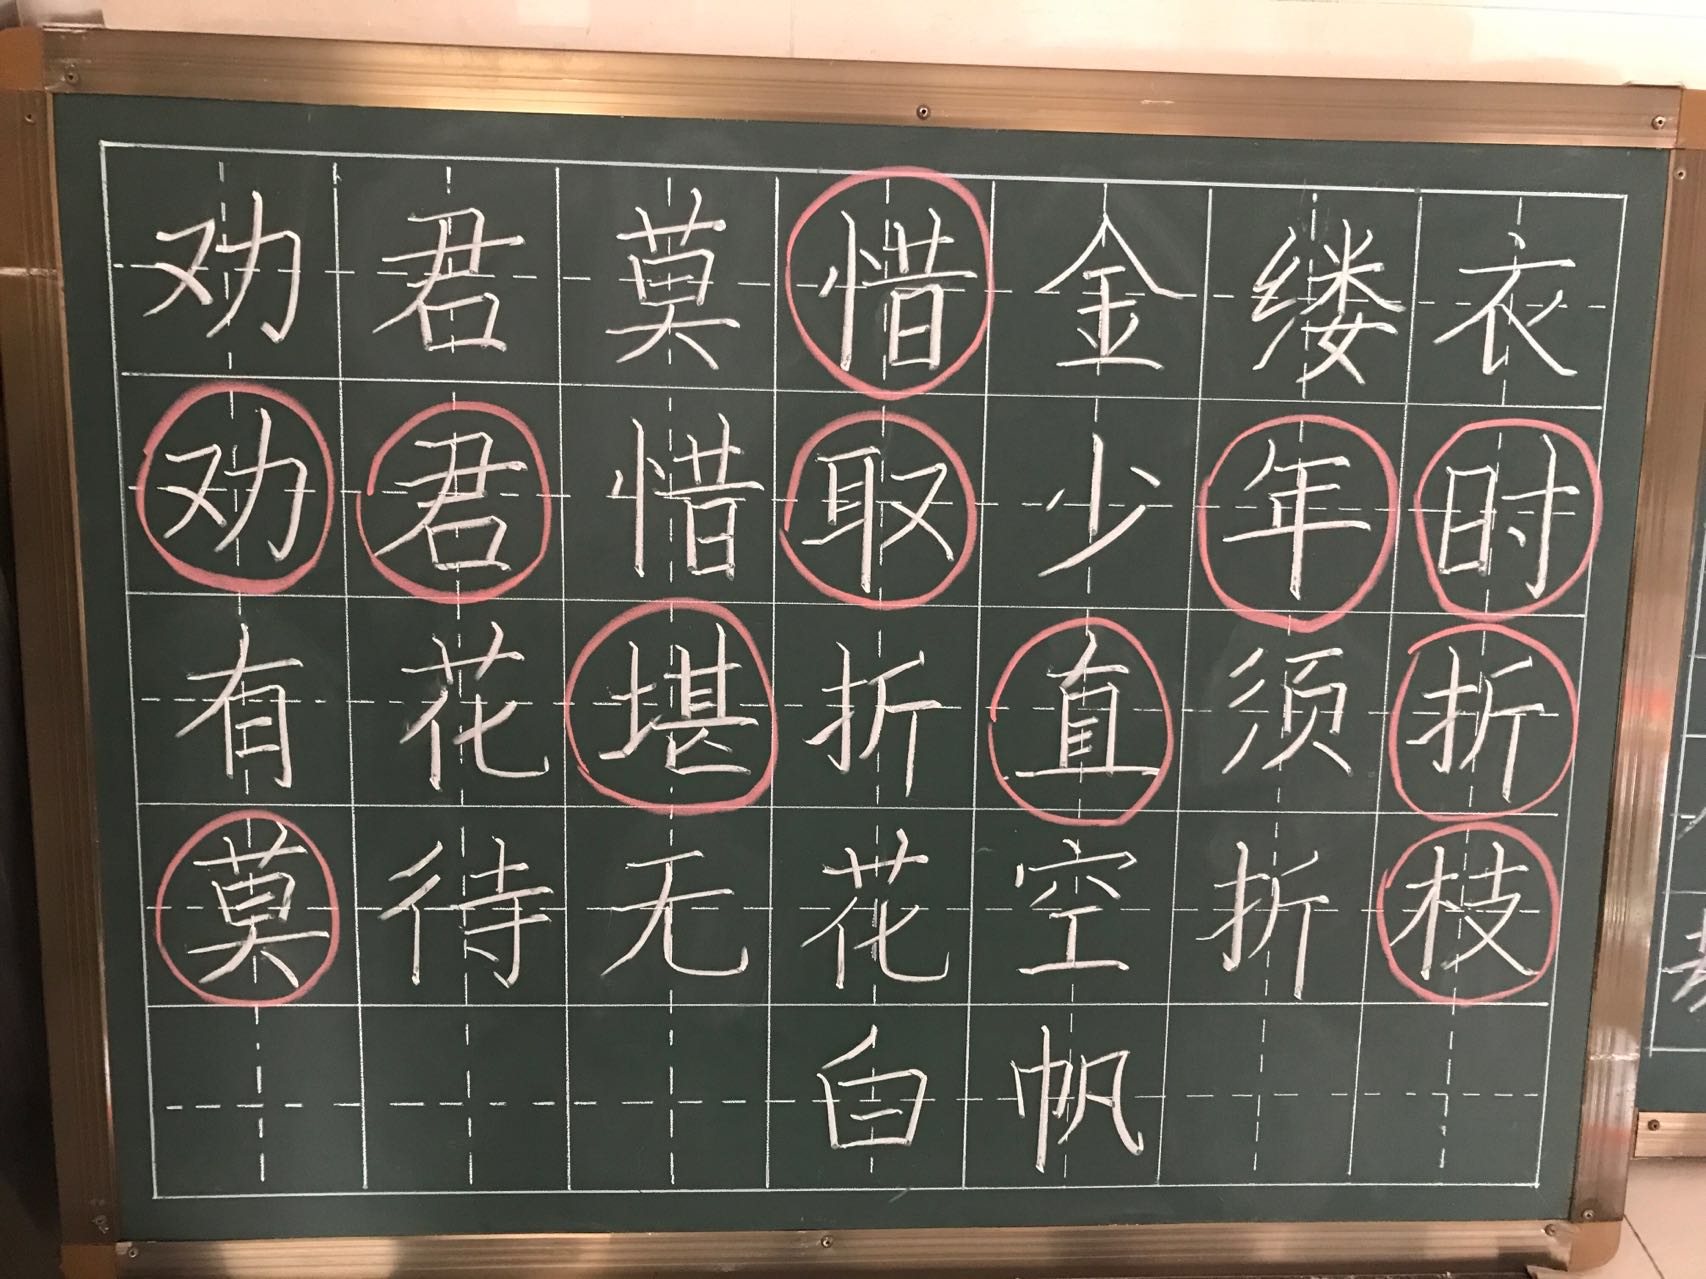 劝君莫惜金缕衣
劝君惜取少年时
有花堪折直须折
莫待无花空折枝
白帆